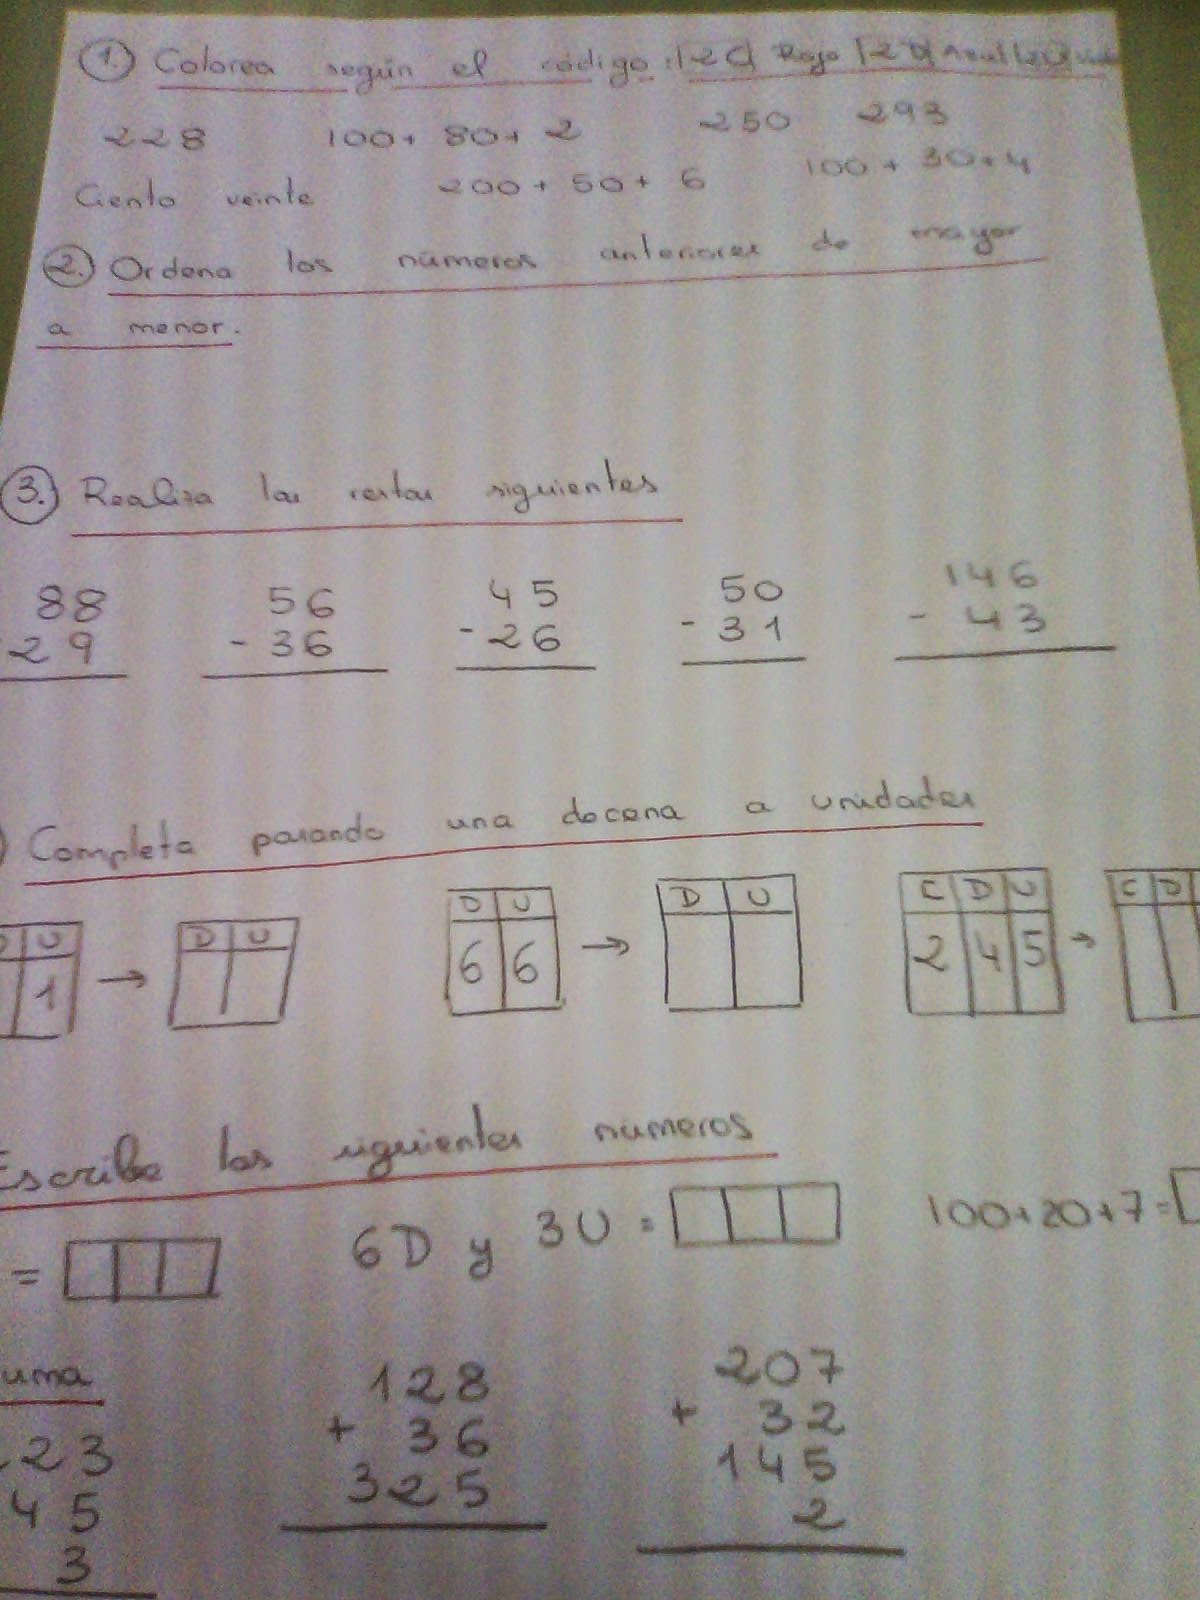 1. Colorea según el código: 2C Rojo 2D Azul
228 100+ 80+ 2 250 293
Ciento veinte 200 + 50 + 6 100 + 30+4
2. Ordena los números anteriores de mayor
a menor.
3. Realiza las restas siguientes
88 56 45 50 146
29 - 36 - 26 - 31 - 43
Completa pasando una decena a unidades
D U → D U D U → D U C D U → C D
1 6 6 2 4 5
Escribe los siguientes números
= 6D y 3U = 100+20+7=
uma
23 128 207
45 + 36 + 32
3 325 145
2